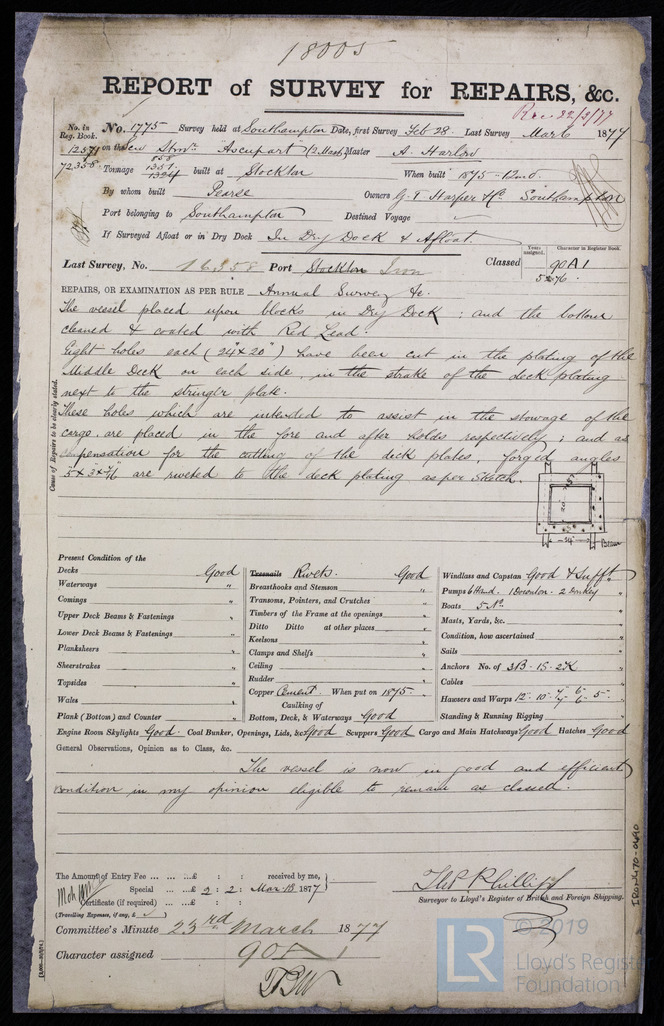 18005
REPORT of SURVEY for REPAIRS, &c.
Rec 22/3/77
No. in Reg. Book.
No. 1775 Survey held at Southampton Date, first Survey Feb 28 Last Survey Mar 6 1877
12571 on the Screw Stmr. Ascupart (2 Masts) Master A. Harlow
72358 Tonnage 1351 1324 built at Stockton When built 1875 - 12mo.
By whom built Pearse Owners G. T. Harper & Co. Southampton
Port belonging to Southampton Destined Voyage
If Surveyed Afloat or in Dry Dock In Dry Dock & Afloat.
Years assigned. Character in Register Book.
Last Survey, No. 16358 Port Stockton Iron Classed 90A1
5.76.
REPAIRS, OR EXAMINATION AS PER RULE Annual Survey &c.
The vessel placed upon blocks in Dry Dock; and the bottom
cleaned & coated with Red Lead.
Eight holes each (24" x 20") have been cut in the plating of the
Middle Deck on each side in the strake of the deck plating
next to the stringer plate.
These holes which are intended to assist in the stowage of the
cargo. are placed in the fore and after holds respectively; and as
compensation for the cutting of the deck plates. forged angles
5 x 3 x 7/16 are riveted to the deck plating as per Sketch.
Cause of Repairs to be clearly stated.
20
24
Beam
Present Condition of the
Decks Good
Waterways "
Comings "
Upper Deck Beams & Fastenings "
Lower Deck Beams & Fastenings "
Planksheers "
Sheerstrakes "
Topsides "
Wales "
Plank (Bottom) and Counter "
Treenails Rivets Good
Breasthooks and Stemson "
Transoms, Pointers, and Crutches "
Timbers of the Frame at the openings "
Ditto Ditto at other places "
Keelsons "
Clamps and Shelfs "
Ceiling "
Rudder "
Copper Cement When put on 1875
Caulking of
Bottom, Deck, & Waterways Good
Windlass and Capstan Good & Sufft.
Pumps 6 Hand. 1 Downton. 2 Donkey
Boats 5 No.
Masts, Yards, &c. "
Condition, how ascertained "
Sails "
Anchors No. of 3B. 1S. 2K
Cables "
Hawsers and Warps
Standing & Running Rigging "
Engine Room Skylights Good. Coal Bunker, Openings, Lids, &c. Good Scuppers Good Cargo and Main Hatchways Good Hatches Good
General Observations, Opinion as to Class, &c.
The vessel is now in good and efficient
condition in my opinion eligible to remain as classed.
The Amount of Entry Fee ... ... ...£ : : received by me,
Special ... ...£ 2 : 2 : Mar 18 1877
Certificate (if required) ... ...£ : :
(Travelling Expenses, if any, £ )
Thos Phillips
Surveyor to Lloyd's Register of British and Foreign Shipping.
Committee's Minute 23rd March 1877
Character assigned 90A1
TBW
IRON470-0490
© 2019
LR
Lloyd's Register
Foundation